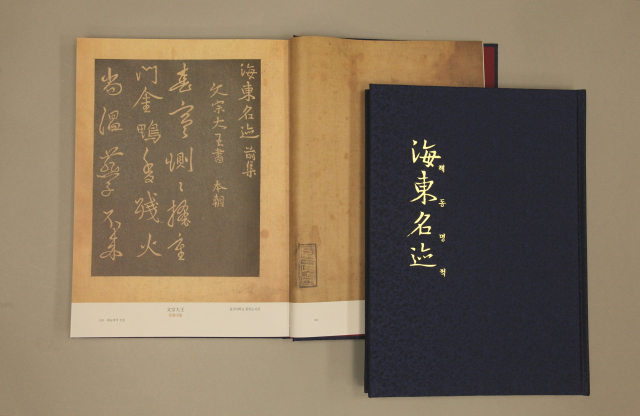 海東名迹 前集
文宗大王書 本朝
春寒惻〻掩重
門金鴨香残火
尚溫燕子不来
文宗大王
海東名迹
해동명적